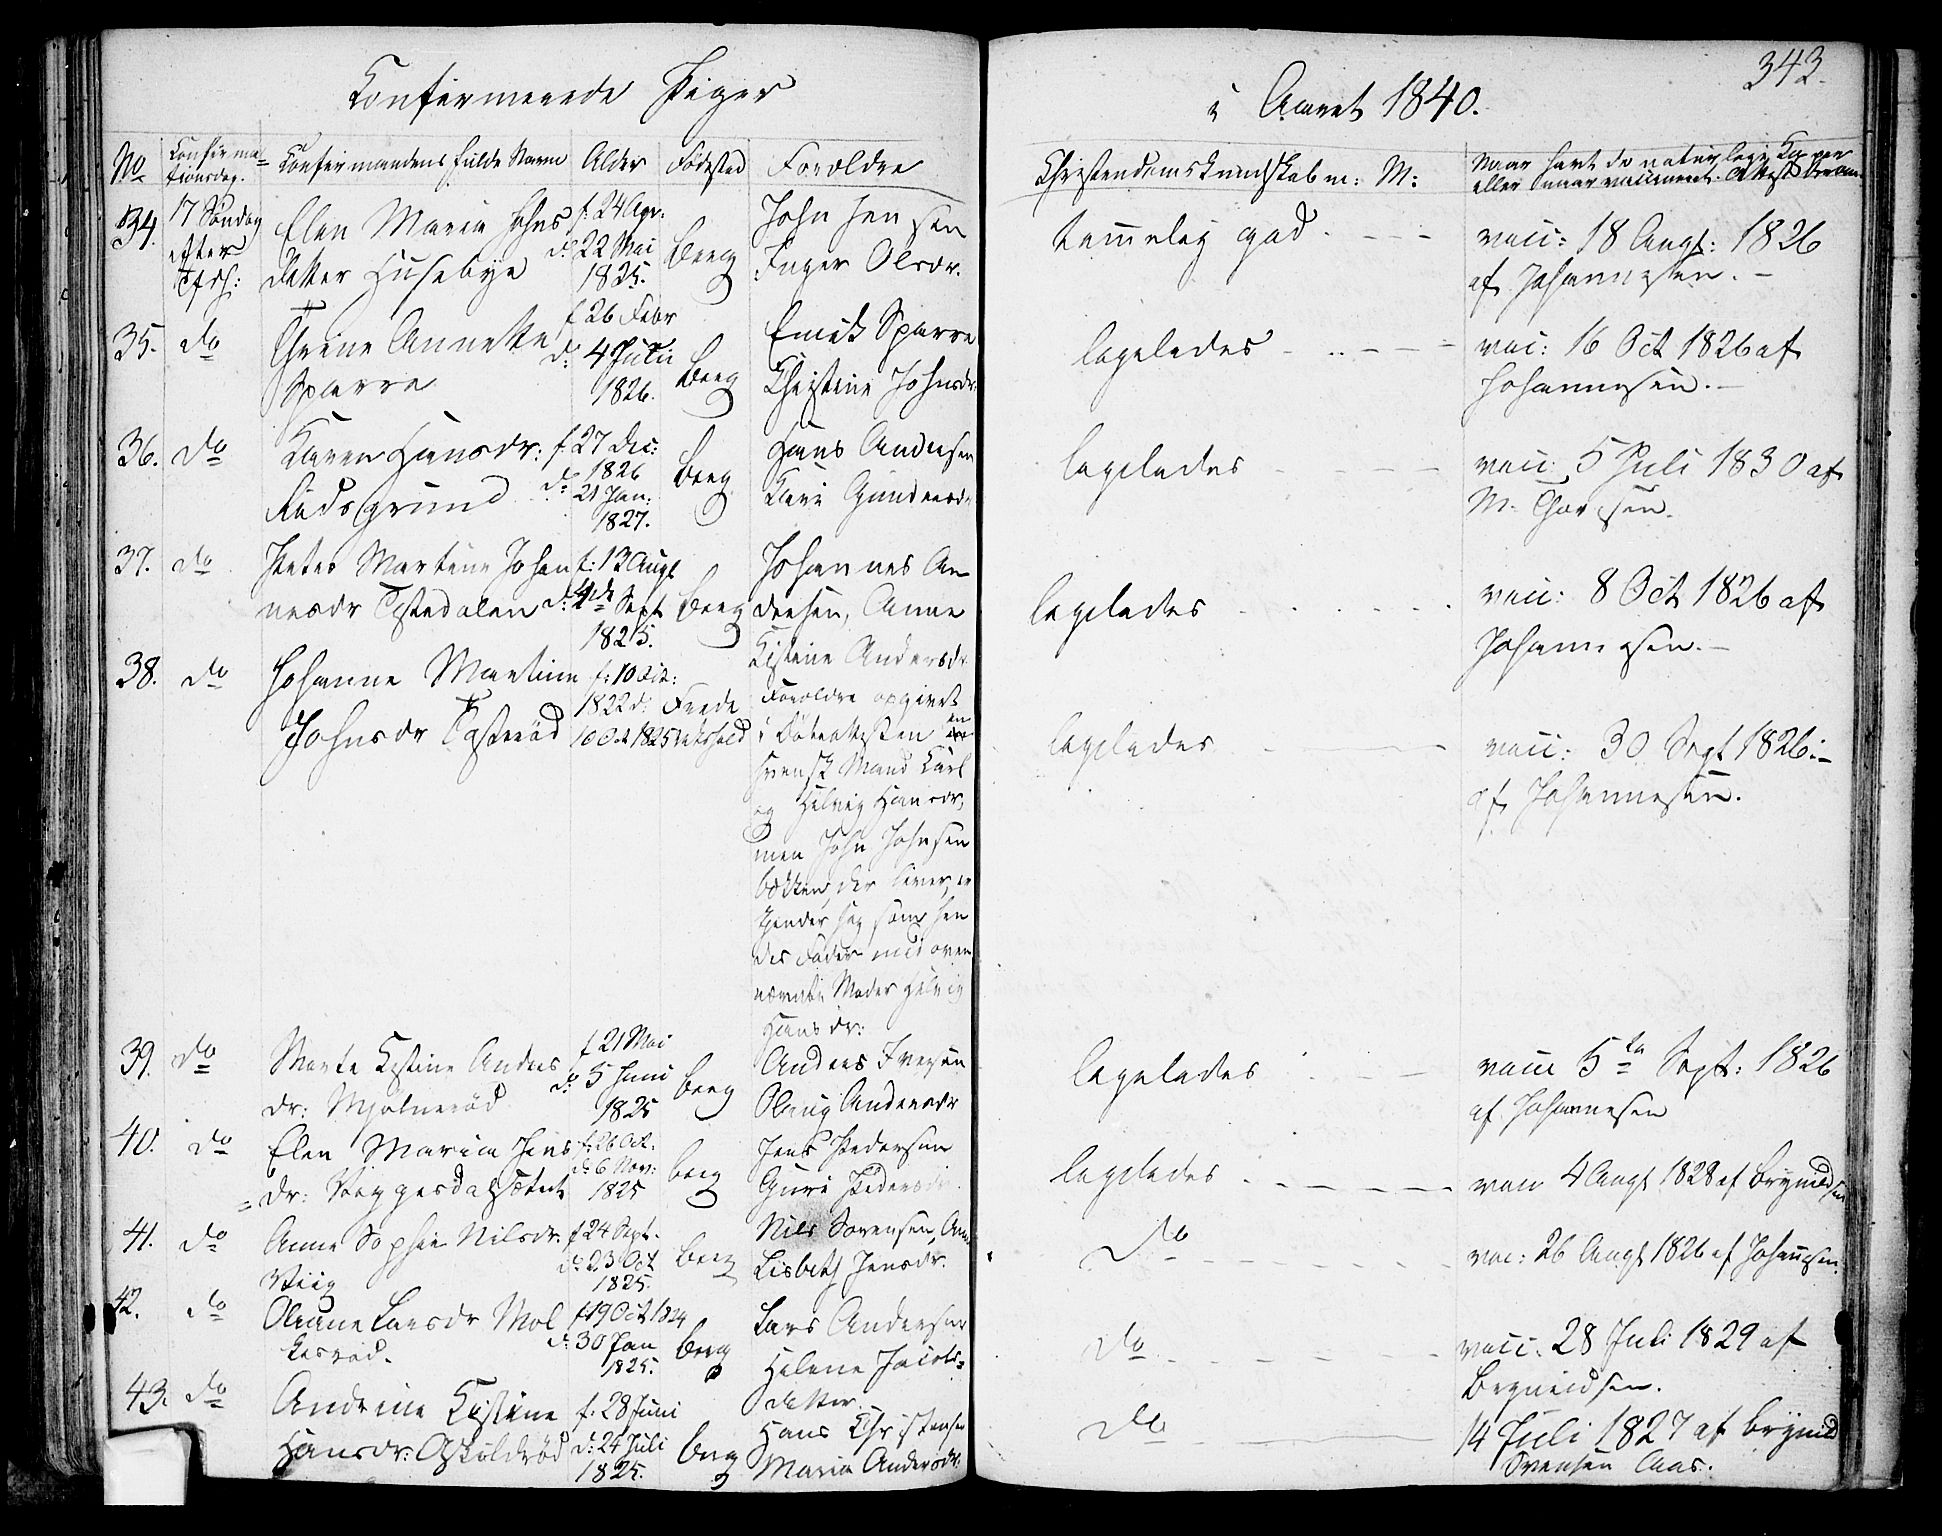 Confirmerede Piger
i Aaret 1840.
343.
No
Confirma-
tionsdag.
Confirmandens fulde Navn
Alder
Fødested
Forældre
Christendomskundskab m: M:
Naar havt de naturlige Kopper
eller naar vaccineret
34.
17 Søndag
efter
Elen Maria Johns
datter Husebye
f. 24 Apr:
d: 22 Mai
1825.
Berg
John Jensen
Inger Olsdr.
temmelig god
vacc: 18 Augt: 1826
af Johannesen.
35.
do
Thrine Annette
Sparre
f 26 Febr
d: 4 Juni
1826.
Berg
Emik Sparre
Christine Johnsdr:
ligeledes
vac: 16 Oct 1826 af
Johannesen.
36.
do
Karen Hansdr:
Riidsgrund
f. 27 Dec:
1826
d: 21 Jan:
1827.
Berg
Hans Andersen
Kari Gundersdr
ligeledes
vacc: 5 Juli 1830 af
M. Thoresen.
37.
do
Petra Martine Johan
nesdr Tistedalen
f: 13 Augt
d: 4de Sept
1825.
Berg
Johannes An
dersen, Anne
Kistine Andersdr
ligeledes
vacc: 8 Oct 1826 af
Johannesen.
38.
do
Johanne Martine
Johnsdr Tosterød
f: 10 Oct:
1822 d:
10 Oct 1825
Frede
rikshald
Forældre opgivet
i Døbeattesten en
svensk Mand Carl
og Helvig Hansdr,
men John Johnsen
Bakken, der lever, er
kjender sig som hen
des Fader med oven
nævnte Moder Helvig
Hansdr:
ligeledes
vacc: 30 Sept 1826
af Johannesen.
39.
do
Marte Kistine Anders
dr: Mjølnerød
f 21 Mai
d: 5 Juni
1825
Berg
Anders Iversen
Olaug Andersdr
ligeledes
vacc 5te Sept: 1826
af Johannesen
40.
do
Elen Maria Jens
dr: Viggesdalsætret
f. 26 Oct.
d: 6 Nov:
1825
Berg
Jens Pedersen
Guri Pedersdr.
ligeledes
vacc 4 Augt 1828 af Brynildsen
41.
do
Anne Sophie Nilsdr.
Viig
f 24 Sept.
d: 23 Oct
1825.
Berg
Nils Sørensen, Anne
Lisbeth Jensdr.
do
vac: 26 Augt 1826 af Johannesen.
42.
do
Oleane Larsdr Mol
kerød.
f 19 Oct 1824
d: 30 Jan
1825.
Berg
Lars Andersen
Helene Jacobs-
datter.
do
vacc. 28 Juli 1829 af
Brynildsen.
43.
do
Andrine Kistine
Hansdr: Askilderød
f. 28 Juni
d: 24 Juli
1825.
Berg
Hans Christensen
Maria Andersdr.
do
14 Juli 1827 af Brynild
Svensen Aas.